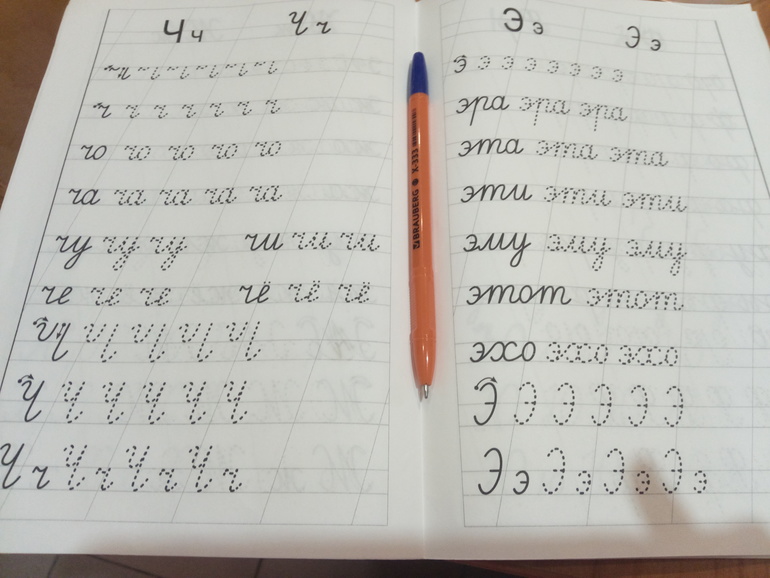 Ч ч Ч ч
ч ч ч ч ч ч ч
ч ч ч ч ч ч ч
чо чо чо чо чо
ча ча ча ча ча
чу чу чу чи чи чи
че че че чё чё чё
Ч Ч Ч Ч Ч
Ч Ч Ч Ч Ч Ч
Ч ч Ч ч Ч ч Ч ч
BRAUBERG X-333
Э э Э э
э э э э э э э э
эра эра эра
эта эта эта
эти эти эти
эму эму эму
этот этот
эхо эхо эхо
Э Э Э Э Э Э
Э э Э э Э э Э э